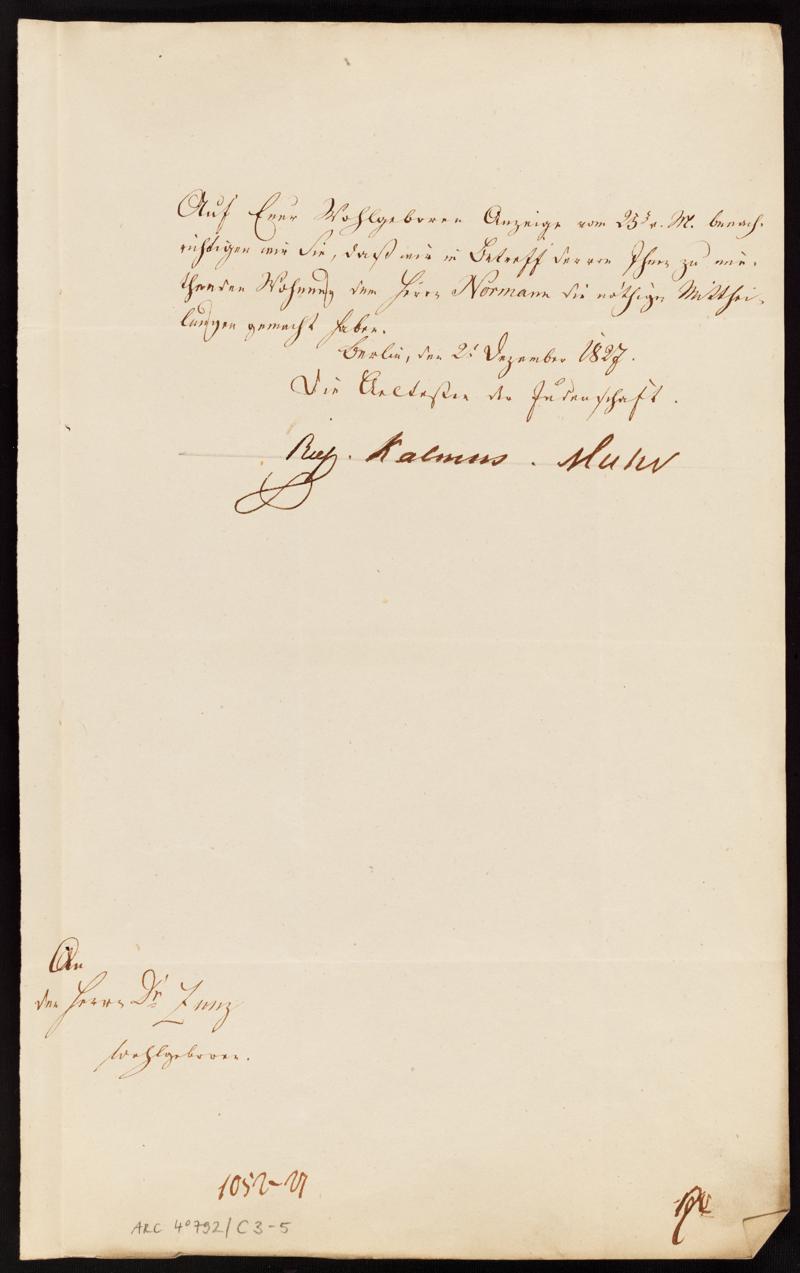 Auf Euer Wohlgeboren Anzeige vom 23t v. M. benach-
richtigen wir Sie, daß wir in Betreff der von Ihnen zu mie-
thenden Wohnung dem Herrn Normann die nöthigen Mitthei-
lungen gemacht haben.
Berlin, den 2t Dezember 1827.
Die Aeltesten der Judenschaft.
Kalmus. Muhr
An
den Herrn Dr Zunz
Wohlgeboren.
1052-27
ARC 4° 792/C3-5